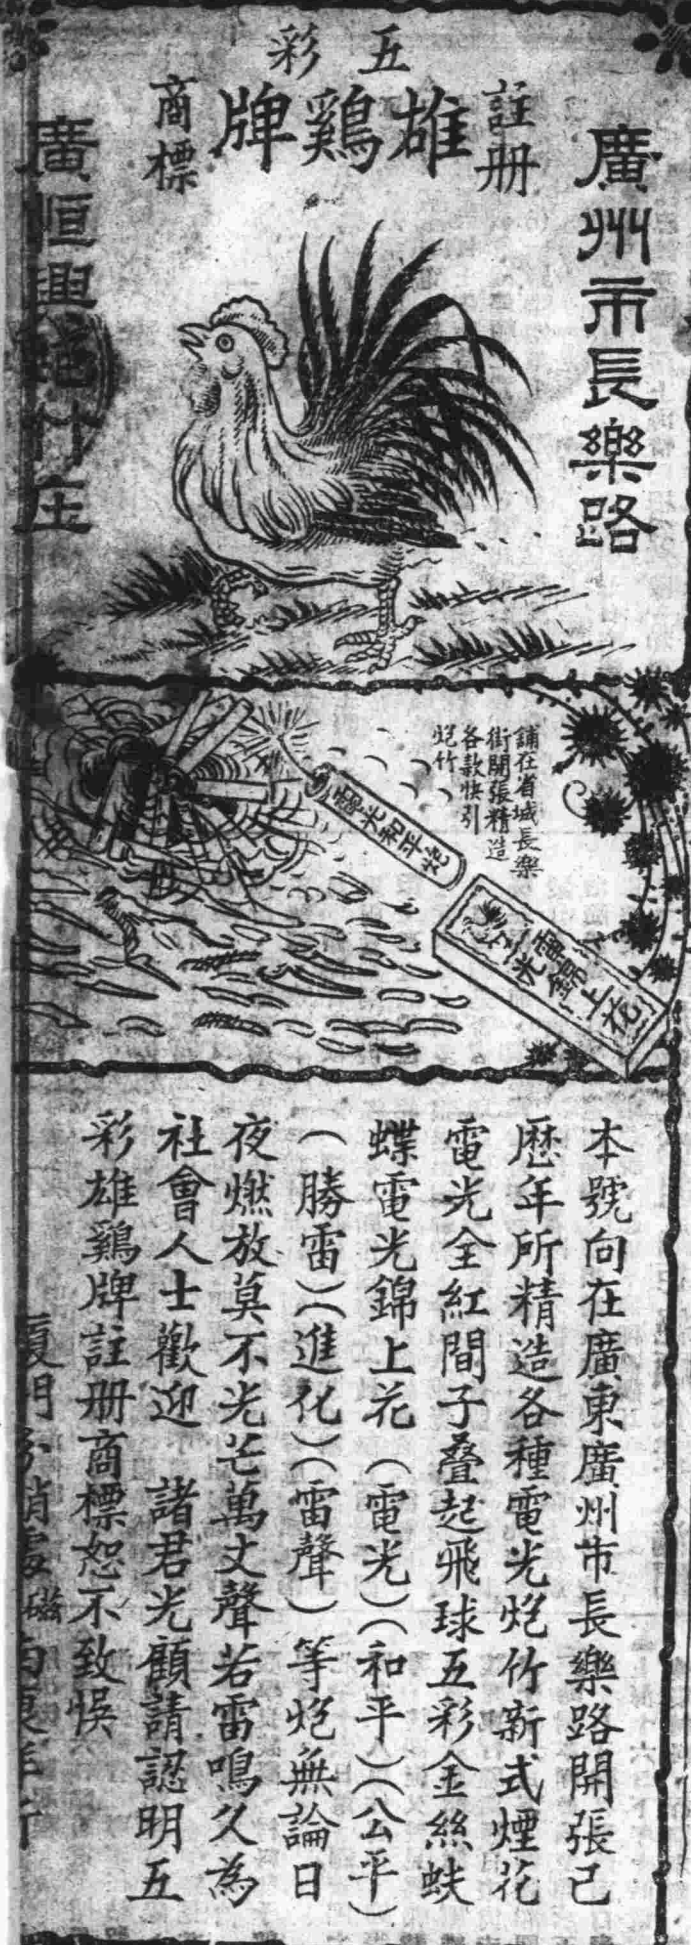 五彩
註冊
雄鷄牌
商標
廣州市長樂路
廣恒興炮竹庄
鋪在省城長樂
街開張精造
各款快引
炮竹
電光和平炮
電光
錦上花
本號向在廣東廣州市長樂路開張已
歷年所精造各種電光炮竹新式煙花
電光全紅間子叠起飛球五彩金絲蛱
蝶電光錦上花（電光）（和平）（公平）
（勝雷）（進化）（雷聲）等炮無論日
夜燃放莫不光芒萬丈聲若雷鳴久為
社會人士歡迎　諸君光顧請認明五
彩雄鷄牌註册商標恕不致悞
厦門分銷處磁